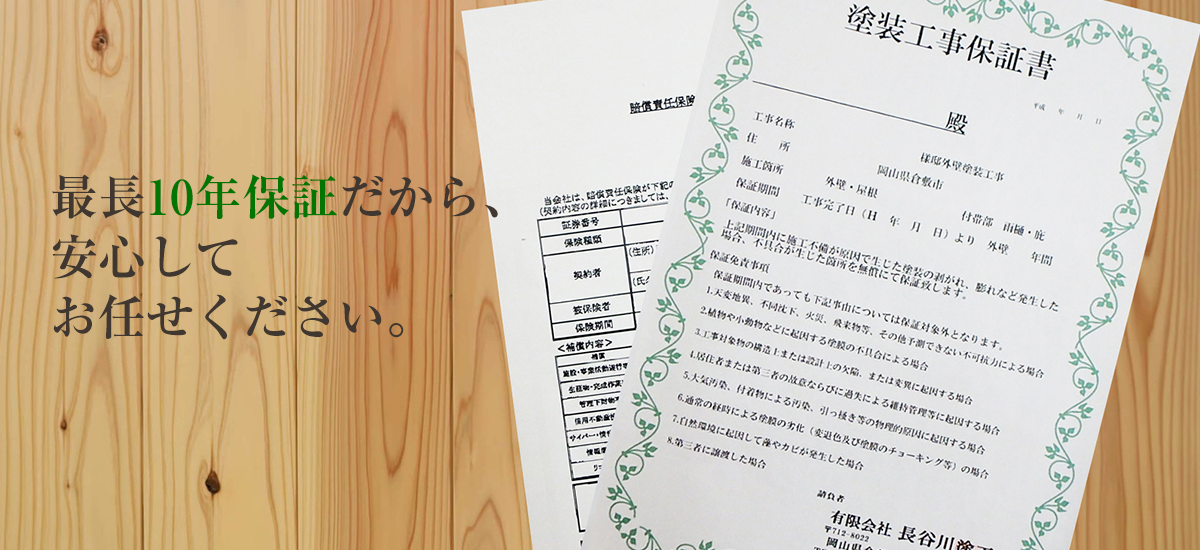 最長10年保証だから、
安心して
お任せください。
賠償責任保険
当会社は、賠償責任保険が下記の
(契約内容の詳細につきましては、
証券番号
保険種類
契約者
(住所)
(氏名
被保険者
保険期間
<補償内容>
補償
施設・事業活動遂行
生産物・完成作業
管理下財物
借用不動産
サイバー・情報
塗装工事保証書
平成 年 月 日
殿
工事名称 様邸外壁塗装工事
住 所 岡山県倉敷市
施工箇所 外壁・屋根 付帯部 雨樋・庇
保証期間 工事完了日(H 年 月 日)より 外壁 年間
「保証内容」
上記期間内に施工不備が原因で生じた塗装の剥がれ、膨れなど発生した
場合、不具合が生じた箇所を無償にて保証致します。
保証免責事項
保証期間内であっても下記事由については保証対象外となります。
1.天変地異、不同沈下、火災、飛来物等、その他予測できない不可抗力による場合
2.植物や小動物などに起因する塗膜の不具合による場合
3.工事対象物の構造上または設計上の欠陥、または変異に起因する場合
4.居住者または第三者の故意ならびに過失による維持管理等に起因する場合
5.大気汚染、付着物による汚染、引っ掻き等の物理的原因に起因する場合
6.通常の経時による塗膜の劣化(変退色及び塗膜のチョーキング等)の場合
7.自然環境に起因して藻やカビが発生した場合
8.第三者に譲渡した場合
請負者
有限会社 長谷川塗工
〒712-8022
岡山県倉